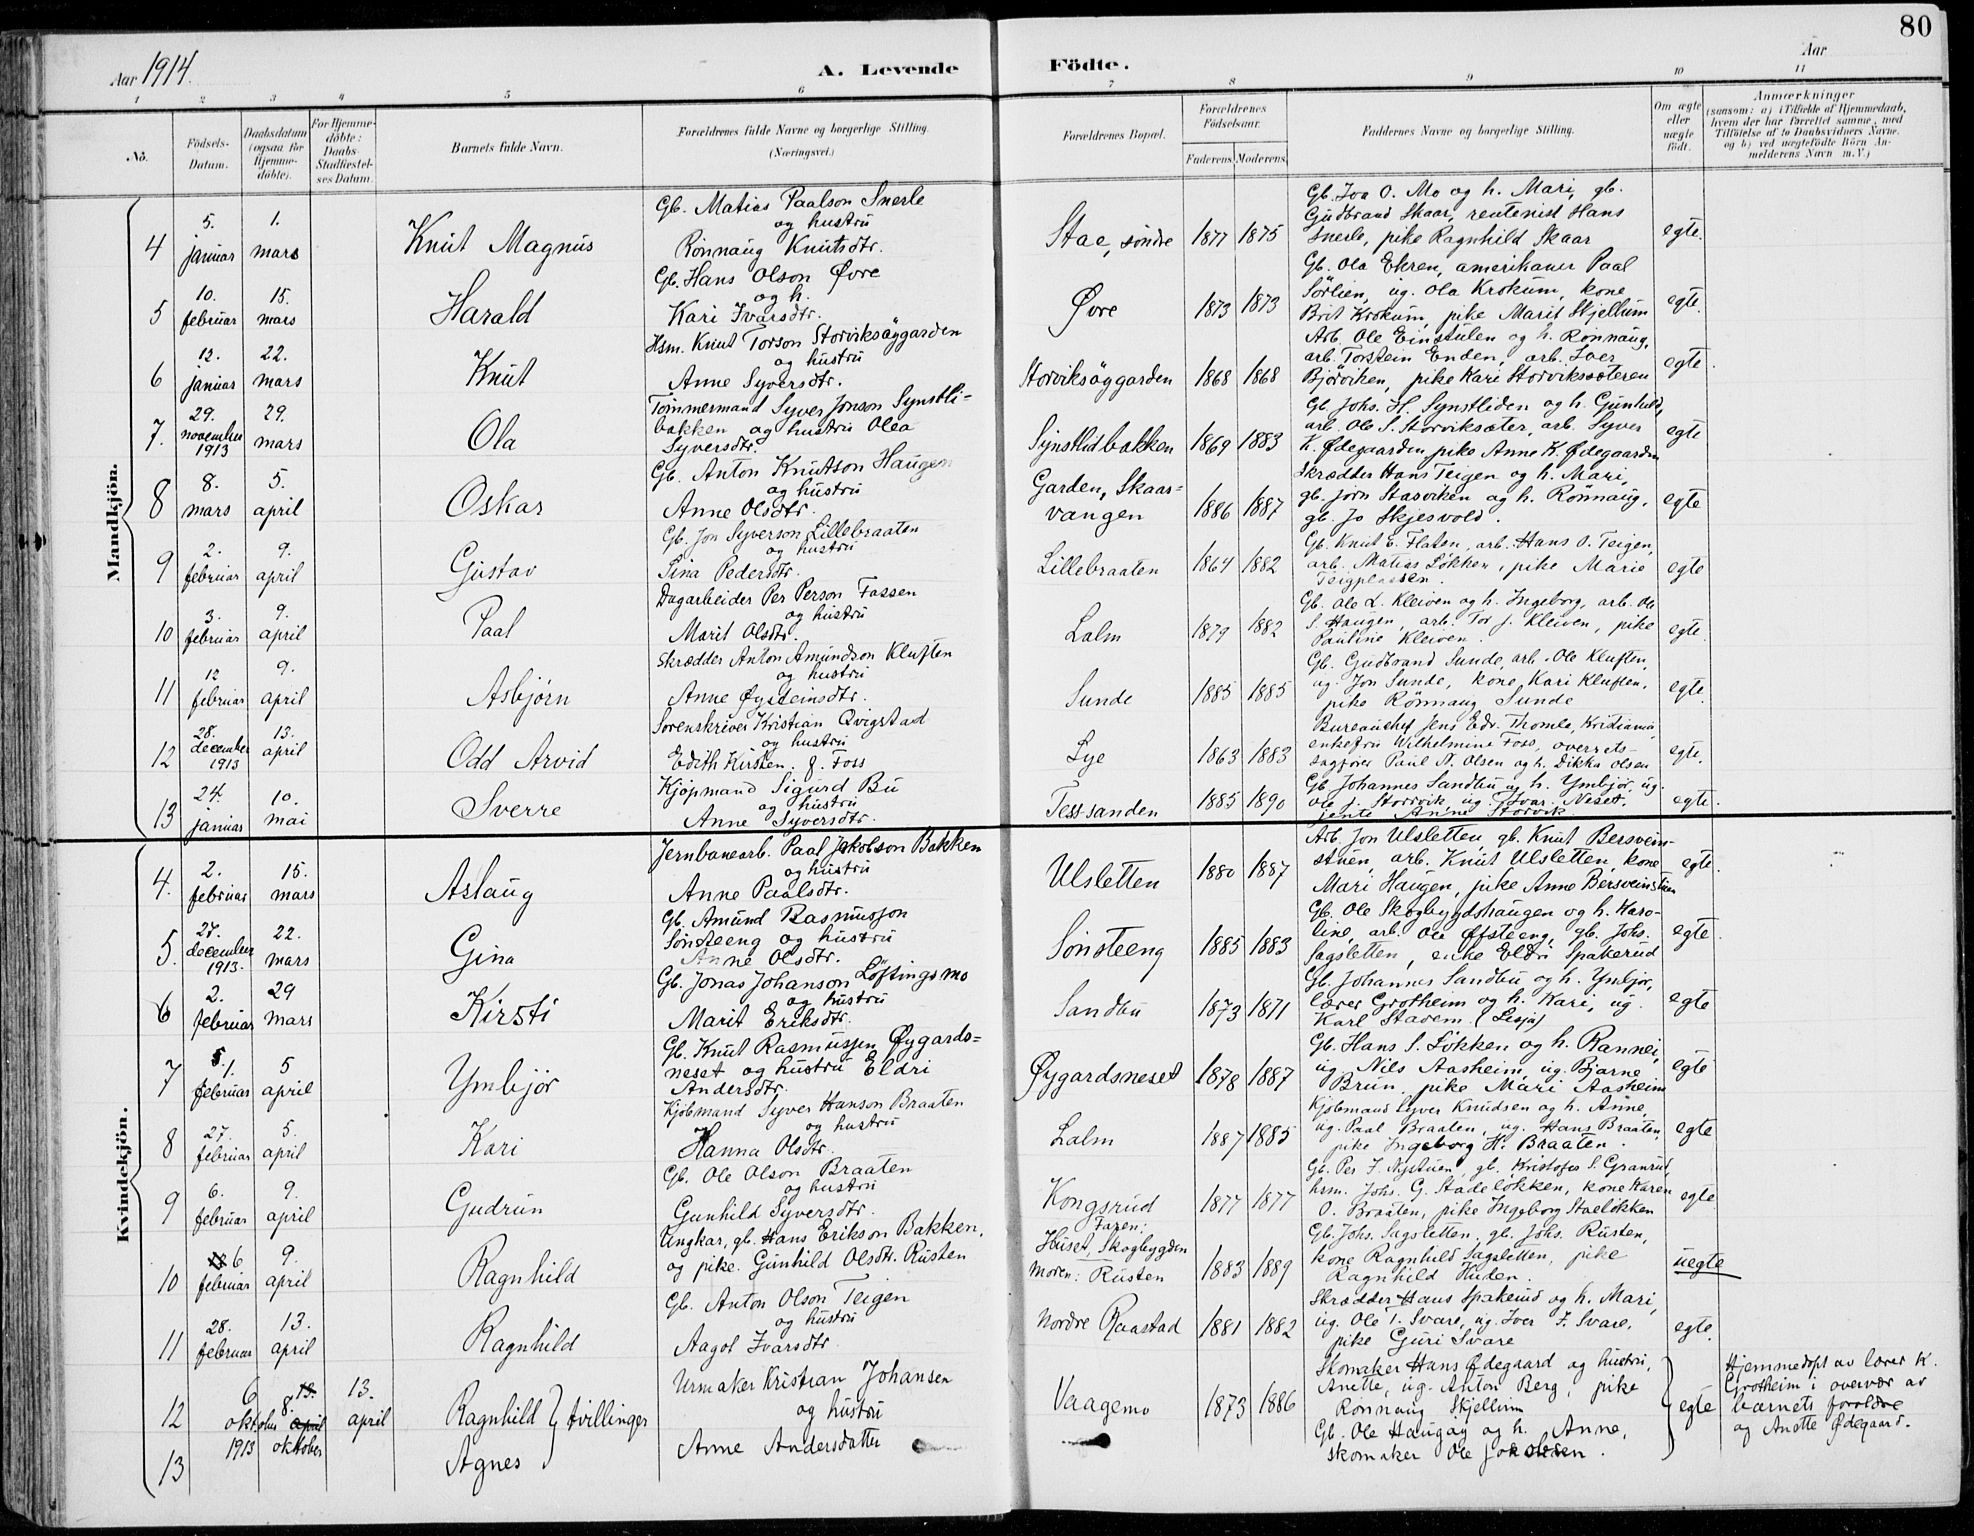 80
Aar 1914.
A. Levende Födte.
Aar
1 2 3 4 5 6 7 8 9 10 11
No.
Födsels-Datum.
Daabsdatum (ogsaa for Hjemmedöbte).
For Hjemmedöbte: Daabs-Stadfæstelses Datum.
Barnets fulde Navn.
Forældrenes fulde Navne og borgerlige Stilling. (Næringsvei.)
Forældrenes Bopæl.
Forældrenes Födselsaar.
Faderens. Moderens.
Faddernes Navne og borgerlige Stilling.
Om ægte eller uægte födt.
Anmærkninger
(saasom: a) i Tilfælde af Hjemmedaab, hvem der har forrettet samme, med Tilföielse af to Daabsvidners Navne. og b) ved uægtefödte Börn Anmelderens Navn m.V.)
Mandkjön.
4 5. januar 1. mars Knut Magnus Gb. Matias Paalson Snerle og hustru Rönnaug Knutsdtr. Stae, söndre 1877 1875 Gb. Iva O. Mo og h. Mari, gb. Gudbrand Skaar, rentenist Hans Snerle, pike Ragnhild Skaar egte.
5 10. februar 15. mars Harald Gb. Hans Olson Øvre og h. Kari Ivarsdtr. Øvre 1873 1873 Gb. Ola Ekren, amerikaner Paal Sörlien, ug. Ola Krokum, kone Brit Krokum, pike Marit Skjellum egte.
6 12. januar 22. mars Knut Hsm. Knut Torson Storviksöggarden og hustru Anne Syversdtr. Storviksöggarden 1868 1868 Arb. Ole Einstulen og h. Rönnaug, arb. Torstein Enden, arb. Iver Björviken, pike Kari Storviksæteren egte.
7. 29. november 1913 29. mars Ola Tömmermand Syver Jonson Synstlibakken og hustru Olea Syversdtr. Synstlidbakken 1869 1883 Gb. Johs. H. Synstliden og h. Gunhild, arb. Ole S. Storviksæter, arb. Syver K. Ødegaarden, pike Anne K. Ødegaarden egte
8 8. mars 5. april Oskar Gb. Anton Knutson Haugen og hustru Anne Olsdtr. Garden, Skaarvangen 1886 1887 Skrædder Hans Teigen og h. Mari, gb. Jörn Stasviken og h. Rönnaug, gb. Jo Skjesvold. egte
9 2. februar 9. april Gustav Gb. Jon Syverson Lillebraaten og hustru Sina Pedersdtr. Lillebraaten 1864 1882 Gb. Knut E. Flaten, arb. Hans O. Teigen, arb. Matias Løkken, pike Marie Teigplassen. egte
10 3. februar 9. april Paal Dagarbeider Per Person Fossen og hustru Marit Olsdtr. Lalm 1879 1882 Gb. Ole L. Kleiven og h. Ingeborg, arb. Ole S. Haugen, arb. Tor J. Kleiven, pike Pauline Kleiven. egte.
11 12 februar 9. april Asbjørn Skrædder Anton Amundson Kluften og hustru Anne Øysteinsdtr. Sunde 1885 1885 Gb. Gudbrand Sunde, arb. Ole Kluften, ug. Jon Sunde, kone Kari Kluften, pike Rönnaug Sunde egte.
12 28. december 1913 13. april Odd Arvid Sorenskriver Kristian Qvigstad og hustru Edith Kirsten f. Foss Lye 1863 1883 Bureauchef Jens Edv. Thomle, Kristiania, enkefru Wilhelmine Foss, overretssagfører Paul N. Olsen og h. Dikka Olsen egte.
13 24. januar 10. mai Sverre Kjöpmand Sigurd Bu og hustru Anne Syversdtr. Tess-sanden 1885 1890 Gb. Johannes Sandbu og h. Ymbjör, ug. Ole J. Storvik, ug. Ivar Neset, jente Anne Storvik. egte.
Kvindekjön.
4. 2. februar 15. mars Aslaug Jernbanearb. Paal Jakobson Bakken og hustru Anne Paalsdtr. Ulsletten 1880 1887 Arb. Jon Ulsletten, gb. Knut Bersveinstuen, arb. Knut Ulsletten, kone Mari Haugen, pike Anne Bersveinstuen egte.
5. 27. december 1913. 22. mars Gina Gb. Amund Rasmusson Sönsteeng og hustru Anne Olsdtr. Sönsteeng 1885 1883 Gb. Ole Skogbygdshaugen og h. Karoline, arb. Ole Øfsteeng, gb. Johs. Sagsletten, enke Eldri Spakerud egte.
6 2. februar 29 mars Kirsti Gb. Jonas Johanson Löftingsmo og hustru Marit Eriksdtr. Sandbu 1873 1871 Gb. Johannes Sandbu og h. Ymbjör, lærer Grotheim og h. Kari, ug. Karl Stavem (Lesja) egte
7 1. februar 5 april Ymbjör Gb. Knut Rasmussen Øygardsneset og hustru Eldri Andersdtr. Øygardsneset 1878 1887 Gb. Hans S. Løkken og h. Rannei, ug. Nils Aasheim, ug. Bjarne Brun, pike Mari Aasheim egte
8 27. februar 5. april Kari Kjöbmand Syver Hanson Braaten og hustru Hanna Olsdtr. Lalm 1887 1885 Kjöbmand Syver Knudsen og h. Anne, ug. Paal Braaten, ug. Hans Braaten, pike Ingeborg H. Braaten. egte
9 6. februar 9. april Gudrun Gb. Ole Olson Braaten og hustru Gunhild Syversdtr. Kongsrud 1877 1877 Gb. Per F. Nystuen, gb. Kristofer S. Granrud, hsm. Johs. G. Stadeløkken, kone Karen O. Braaten, pike Ingeborg Staeløkken egte
10 6. februar 9. april Ragnhild Ungkar, gb. Hans Erikson Bakken, og pike Gunhild Olsdtr. Rusten Faren: Huset, Skogbygden Moren: Rusten 1883 1889 Gb. Johs. Sagsletten, gb. Johs. Rusten, kone Ragnhild Sagsletten, pike Ragnhild Huten. uegte
11 28. februar 13. april Ragnhild Gb. Anton Olson Teigen og hustru Aagot Ivarsdtr. Nordre Raastad 1881 1882 Skrædder Hans Spakerud og h. Mari, ug. Ole T. Svare, ug. Iver F. Svare, pike Guri Svare egte.
12 6 oktober 1913 13. april 8. oktober 13. april Ragnhild } tvillinger Urmaker Kristian Johansen og hustru Anne Andersdatter Vaagemo 1873 1886 Skomaker Hans Ødegaard og hustru, Anette, ug. Anton Berg, pike Rönnaug Skjellum egte Hjemmedöpt av lærer K. Grotheim i overvær av barnets forældre og Anette Ødegaard.
13 Agnes Gb. Ole Haugøy og h. Anne, skomaker Ole Jakobsen.